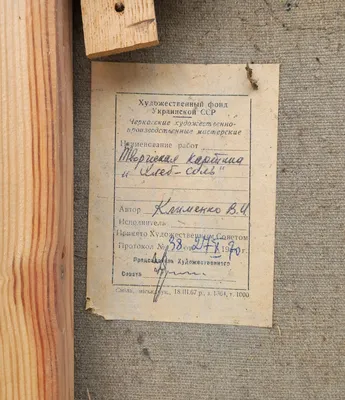 Художественный фонд
Украинской ССР
Черкасские художественно-
производственные мастерские
Наименование работ
Творческая картина
"Хлеб-соль"
Автор Клименко В.И
Исполнители
Принято Художественным Советом
Протокол № 38 27 X 1970 г.
Председатель Художественного
Совета
18.01.67 р., з. 1000